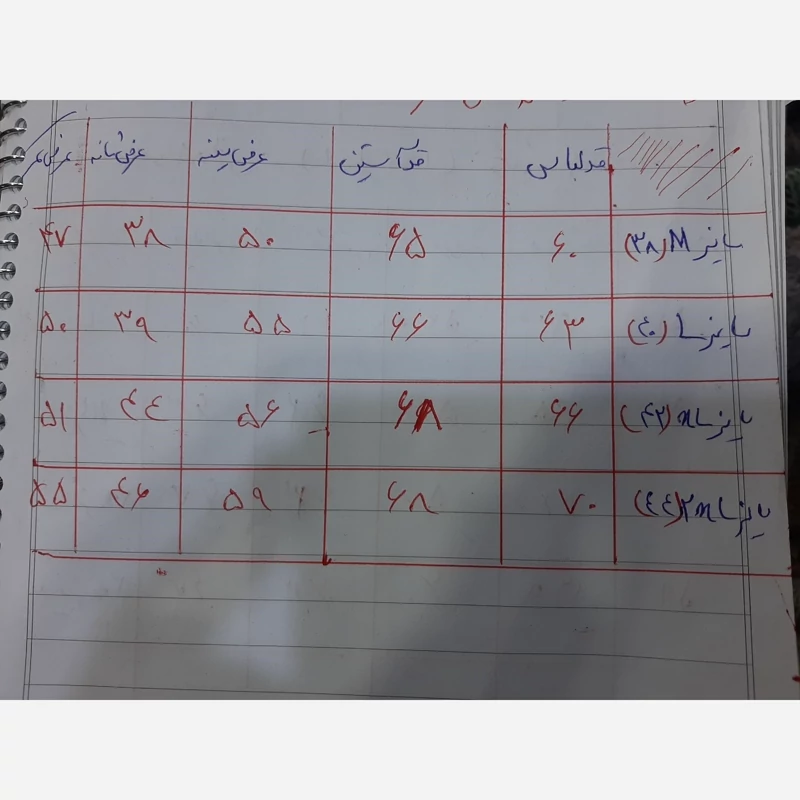 قد لباس قد آستین عرض سینه عرض شانه عرض
سایز M (۳۸) ۶۰ ۶۵ ۵۰ ۳۸ ۴۷
سایز L (۴۰) ۶۳ ۶۶ ۵۵ ۳۹ ۵۰
سایز xL (۴۲) ۶۶ ۶۸ ۵۶ ۴۴ ۵۱
سایز ۲xL (۴۴) ۷۰ ۶۸ ۵۹ ۴۶ ۵۵